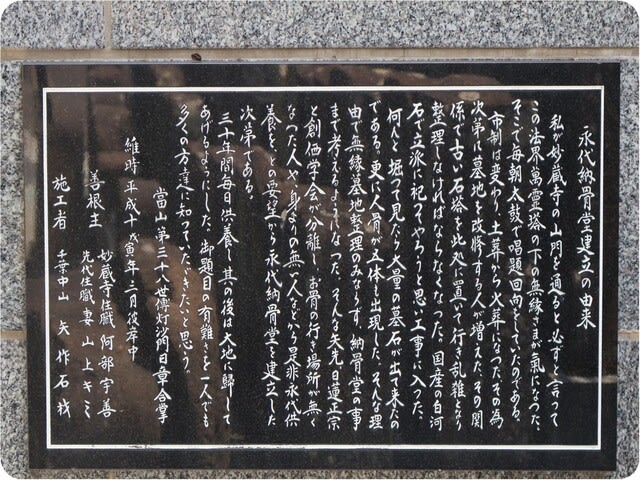 永代納骨堂建立の由来
私が妙蔵寺の山門を通ると必ずと言って
この法界萬霊塔の下の無縁さまが氣になった。
そこで毎朝太鼓で唱題回向をしていたのである。
市制は変わり、土葬から火葬になったその為
次第に墓地を改修する人が増えた。その関
係で古い石塔を此処に置いて行き乱雑となり
整理しなければならなくなった。国産の白河
石で立派に祀ってやろうと思い工事に入った。
何んと掘って見たら大量の墓石が出て来たの
である。更に人骨が五体も出現した。そんな理
由で無縁墓地整理のみならず、納骨堂の事
まで考えるようになった。そんな矢先日蓮正宗
と創価学会が分離し、お骨の行き場所が無く
なった人や、身よりの無い人などから是非永代供
養を、との要望から永代納骨堂を建立した
次第である。
三十年間毎日供養し其の後は大地に歸して
あげるようにした。御題目の有難さを一人でも
多くの方達に知っていただきたいと思う。
當山第三十八世傳灯沙門日章合掌
維時平成十戊寅年三月彼岸中
善根主 妙蔵寺住職 阿部宇善
先代住職妻 山上キミ
施工者 千葉中山 矢作石材